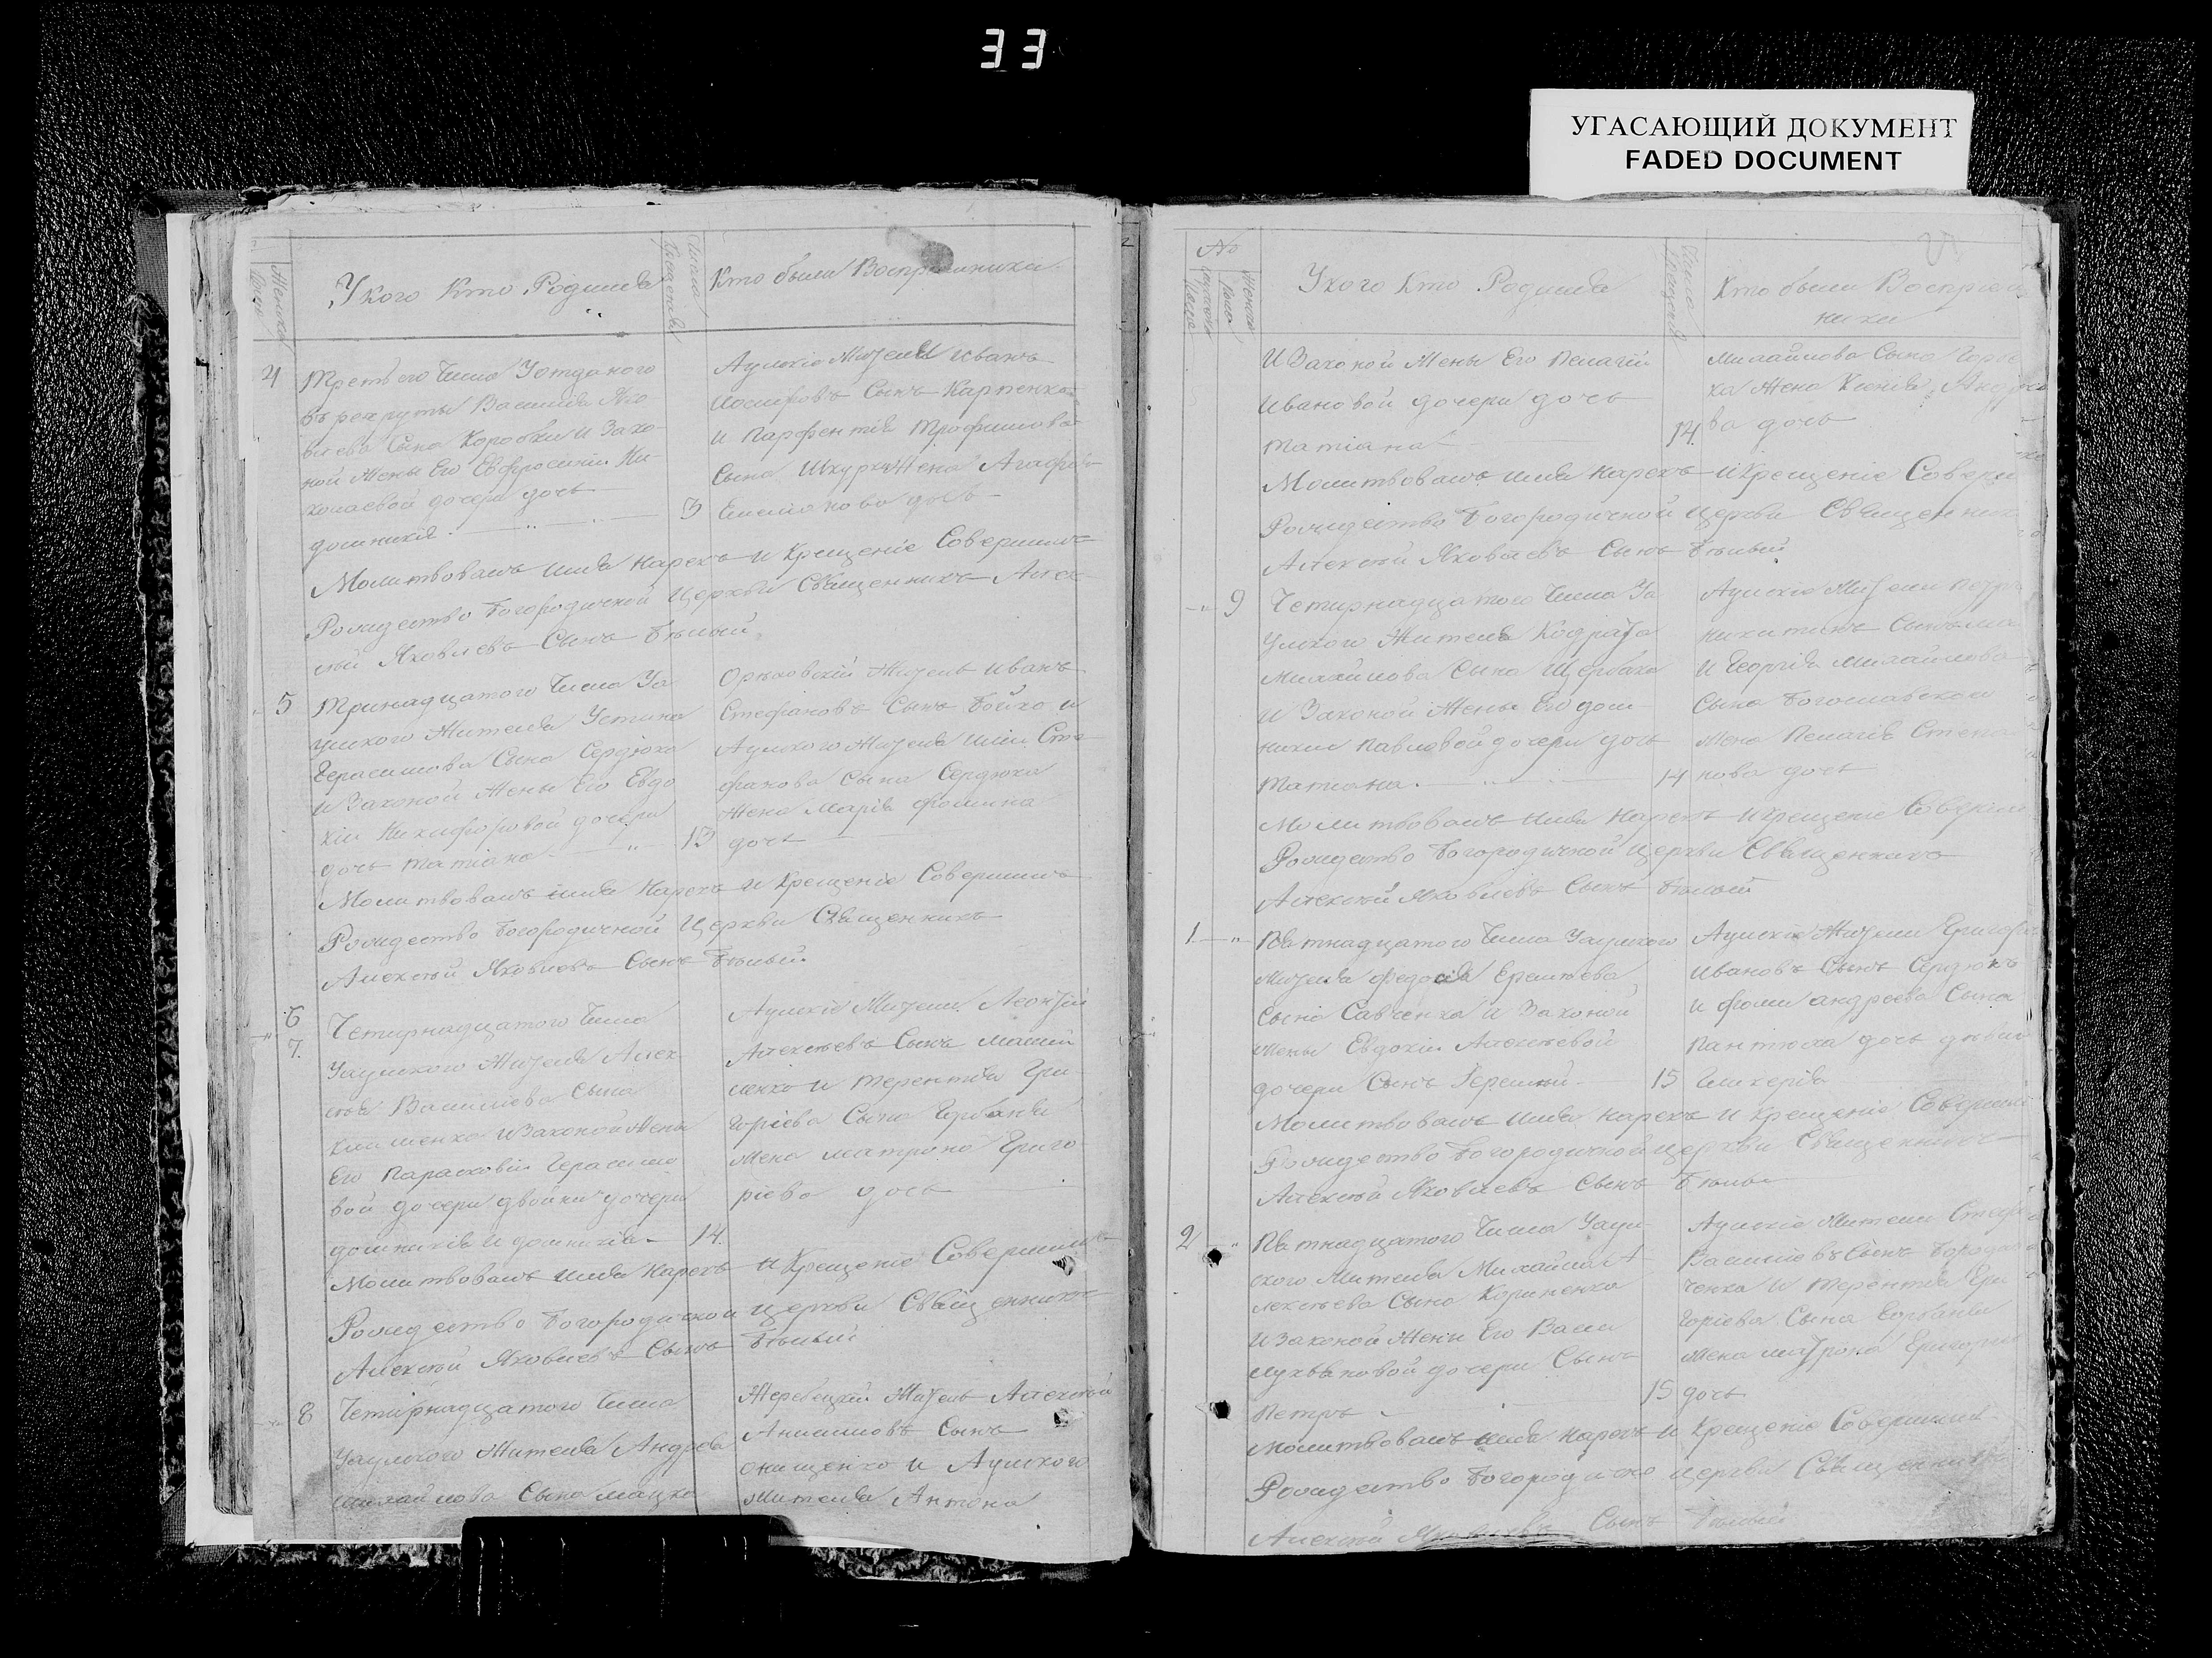 33
УГАСАЮЩИЙ ДОКУМЕНТ
FADED DOCUMENT
Женска
У кого Кто Родился
Числа
Кто были Восприемники
4
Третьего Числа Уотданого
въ рекруты Василія Яко
влева Сына Коробки и Зако
ной Жены Его Евфросиніи Ни
колаевой дочери дочь
домникія
3
Аулскіе Жители Иванъ
Иосифовъ Сынъ Карпенко
и Парфентія Трофимова
Сына Шкурки Жена Агафія
Емелянова дочь
Молитвовалъ имя Нарекъ и Крещеніе Совершилъ
Рождество Богородичной Церкви Священникъ Алек
сѣй Яковлевъ Сынъ Бѣлый
5
Тринадцатого Числа Уа
улского Жителя Устина
Герасимова Сына Сердюка
и Законой Жены Его Евдо
кіи Никифоровой дочери
дочь Татіана
13
Орѣховскій Житель Иванъ
Стефановъ Сынъ Бойко и
Аулского Жителя Иліи Сте
фанова Сына Сердюка
Жена Марія Фомина
дочь
Молитвовалъ имя Нарекъ и Крещеніе Совершилъ
Рождество Богородичной Церкви Священникъ
Алексѣй Яковлевъ Сынъ Бѣлый
6
7
Четирнадцатого Числа
Уаулского Жителя Алек
сѣя Василиева Сына
Клименка и Законой Жены
Его Параскевіи Герасимо
вой дочери двойни дочери
домникія и домникія
14.
Аулскіе Жители Леонтій
Алексѣевъ Сынъ
сенко и Терентія Гри
горіева Сына Горбаня
Жена Матрона Григо
ріева дочь
Молитвовалъ имя Нарекъ и Крещеніе Совершилъ
Рождество Богородичной Церкви Священникъ
Алексѣй Яковлевъ Сынъ Бѣлый
8
Четирнадцатого Числа
Уаулского Жителя Андрея
Михайлова Сына Мацка
Жеребецкій Житель Алексѣй
Анисимовъ Сынъ
Онищенко и Аулского
Жителя Антона
№
У кого Кто Родился
Кто были Восприем
ники
И Законой Жены Его Пелагіи
Ивановой дочери дочь
Татіана
14
Михайлова Сына
ка Жена Ксенія Андрее
ва дочь
Молитвовалъ имя Нарекъ и Крещеніе Соверши
Рождество Богородичной Церкви Священник
Алексѣй Яковлевъ Сынъ Бѣлый
9
Четирнадцатого Числа Уа
улского Жителя Кодрата
Михайлова Сына Щербака
и Законой Жены Его дом
никии Павловой дочери дочь
Татиана.
14
Аулскіе Жители Петръ
Никитинъ Сынъ
и Георгія Михайлова
Сына Богославского
Жена Пелагія Степа
нова дочь
Молитвовалъ имя Нарекъ и Крещеніе Соверши
Рождество Богородичной Церкви Священникъ
Алексѣй Яковлевъ Сынъ Бѣлый
1
Пятнадцатого Числа Уаулского
Жителя Федосія Еремѣева
Сына Савченка и Законой
Жены Евдокіи Алексѣевой
дочери Сынъ Геремій
15
Аулскіе Жители Григорі
Ивановъ Сынъ Сердюкъ
и Фоми Андреева Сына
Пантюха дочь дѣвиц
Гликерія
Молитвовалъ имя Нарекъ и Крещеніе Соверши
Рождество Богородичной Церкви Священникъ
Алексѣй Яковлевъ Сынъ Бѣлы
2
Пятнадцатого Числа Уаул-
ского Жителя Михайла А
лексѣева Сына Кориненка
и Законой Жены Его Васи
Лукьяновой дочери Сынъ
Петръ
15
Аулскіе Жители Стеф
Василиевъ Сынъ Борода
ченка и Терентія Гри
горіева Сына Горбаня
Жена Матрона Григорі
дочь
Молитвовалъ имя Нарекъ и Крещеніе Совершилъ
Рождество Богородично Церкви Священникъ
Алексѣй Яковлевъ Сынъ Бѣлый